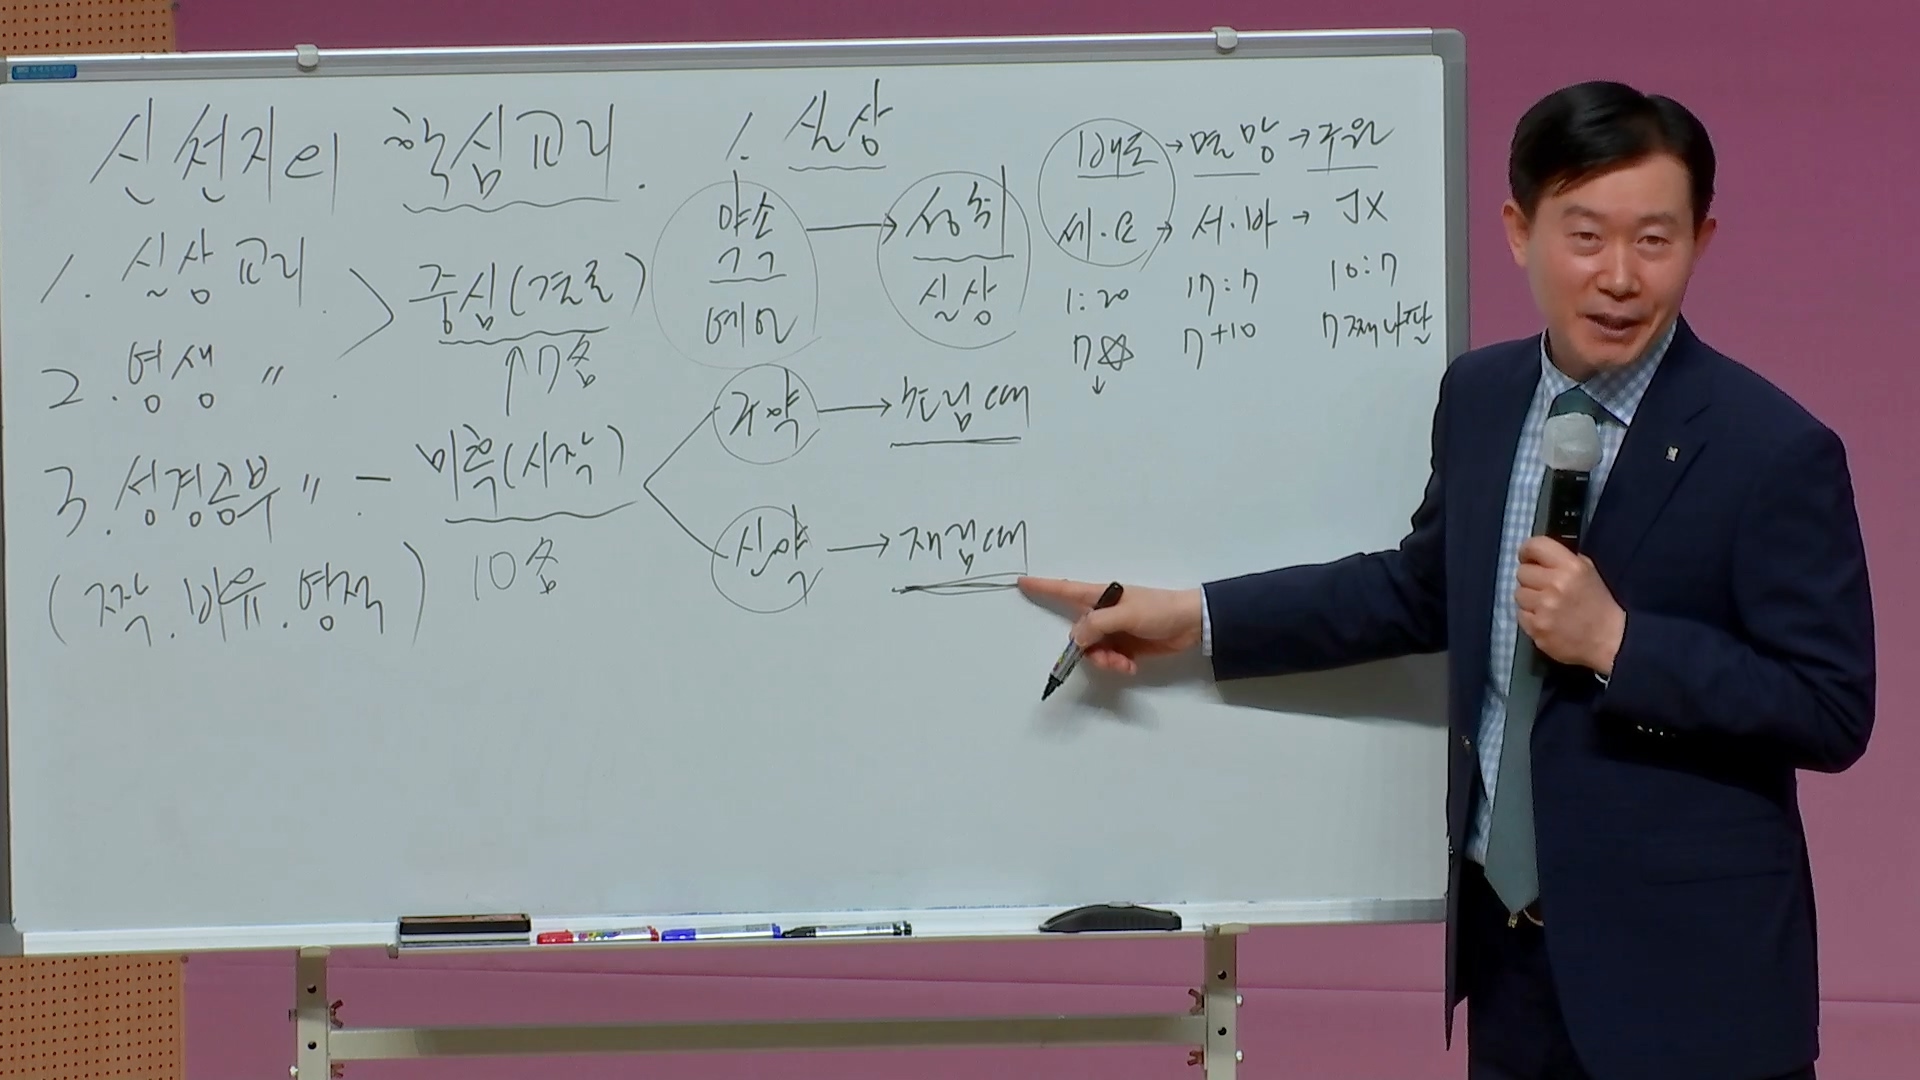 신천지의 핵심교리.
1. 실상교리
2. 영생 〃
3. 성경공부 〃 -
(짝. 비유. 영적)
중심(결론)
↑ 7줌
미혹(시작)
10줌
1. 실상
약속 → 성취
예언 실상
구약 → 초림때
신약 → 재림때
배도 → 멸망 → 구원
세.요 → 서.바 → JX
1:20 17:7 10:7
7☆ 7+10 7째나팔
↓